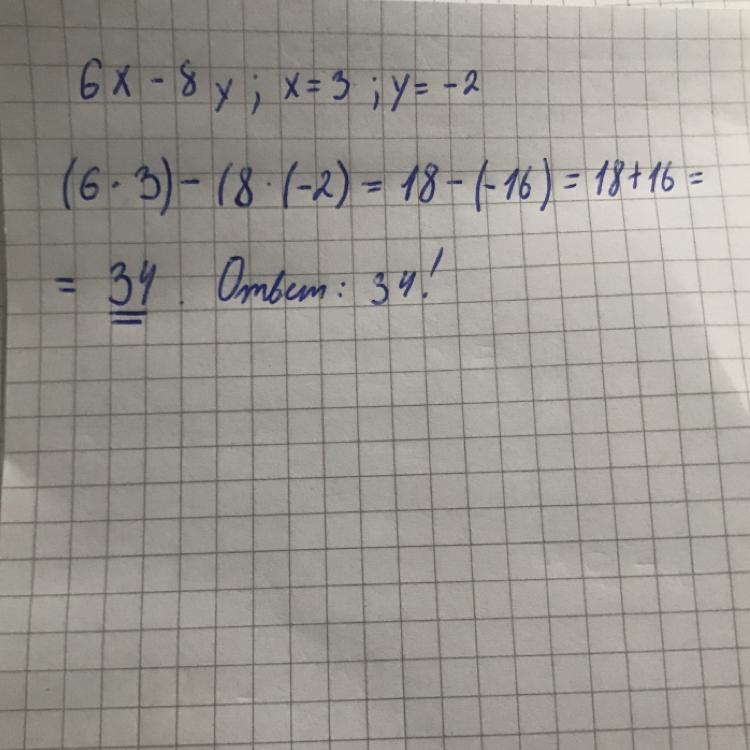 6x - 8y; x = 3; y = -2
(6 · 3) - (8 · (-2) = 18 - (-16) = 18 + 16 =
= 34. Ответ: 34!